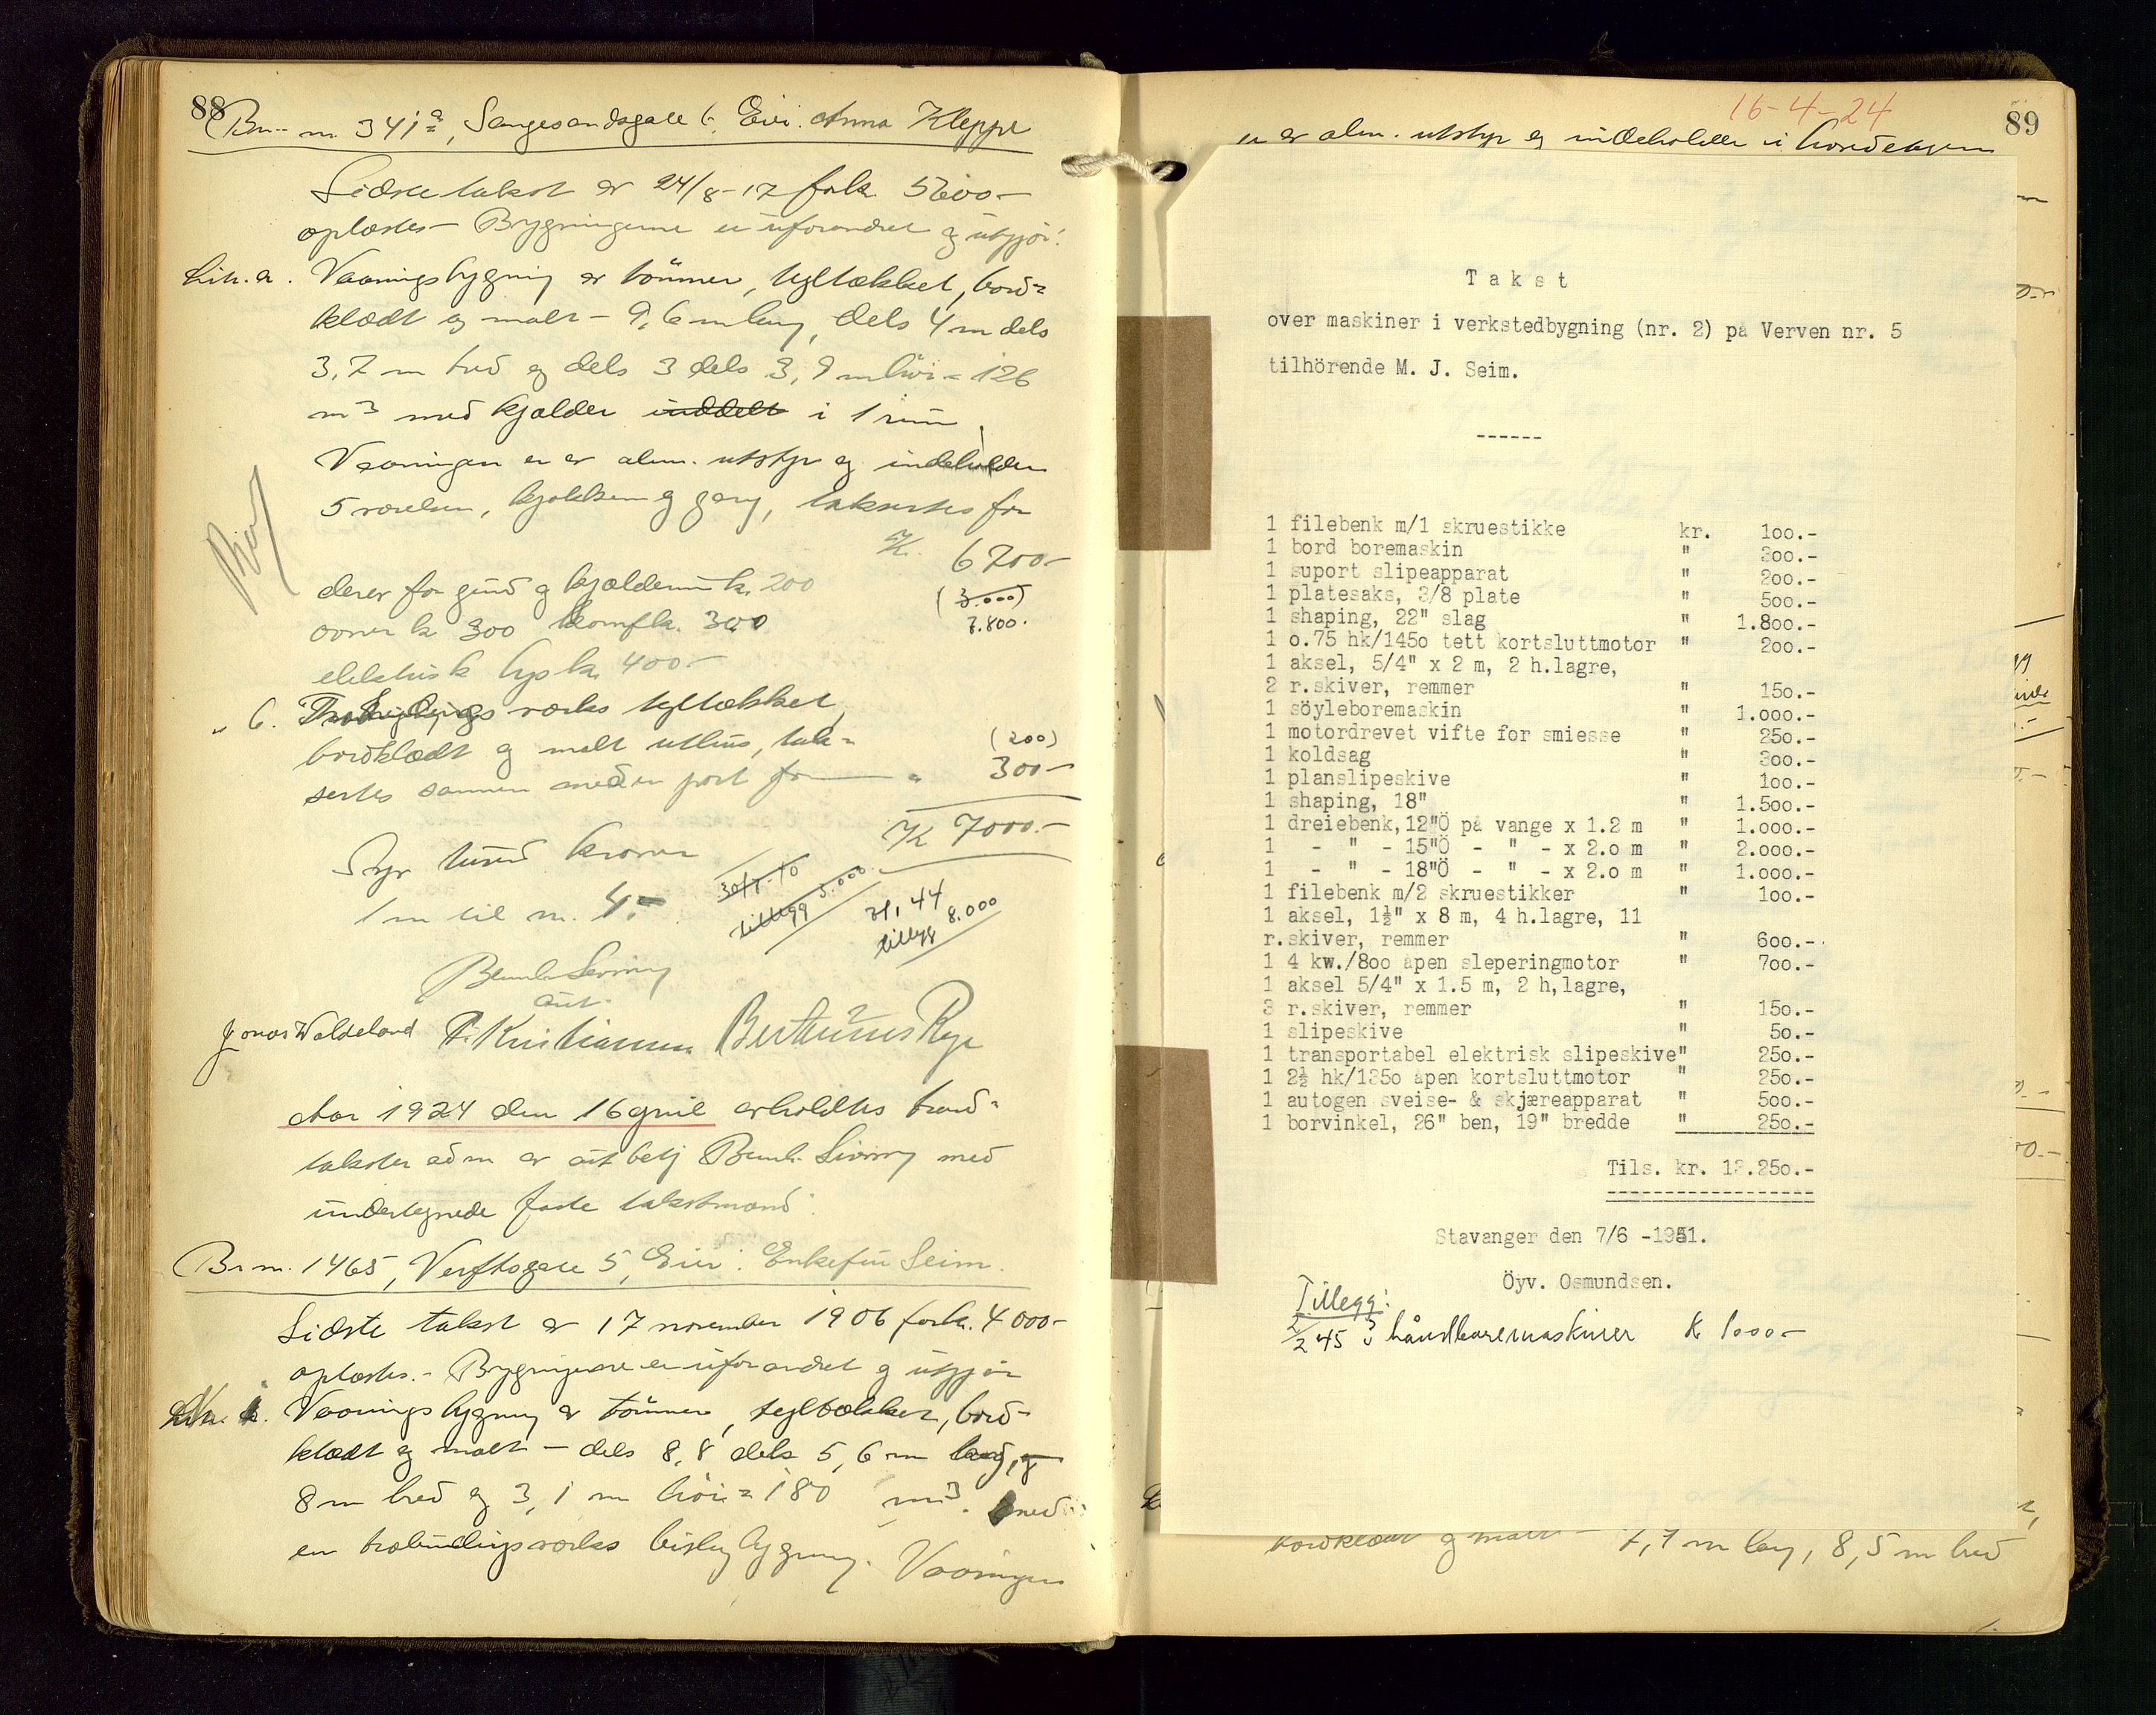 88
Br. nr. 341a, Sangesandsgate 6. Eier: Anna Kleppe
Sidste takst er 24/8-17 for kr. 5600-
oplæstes- Bygningerne er uforandret og utgjør:
Litr. a. Vaaningsbygning er tømmer, tegltækket, bord=
klædt og malt - 9,6 m lang, dels 4 m dels
3,7 m bred og dels 3 dels 3,9 m høi = 126
m3 med kjælder inddelt i 1 rum
Vaaningen er av alm. utstyr og indeholder
5 værelser, kjøkken og gang, taksertes for
Kr. 6700-
derav for grund og kjælderrum kr. 200
(3.000)
ovner kr 300 komfk. 300
3.800.
elektrisk lys kr. 400.-
" b. Træbindings verks tegltækket,
bordklædt og malt uthus, tak=
(200)
sertes sammen med en port for " 300-
Kr. 7000.-
Syv tusend kroner
1 m til nr. 4.-
30/7-40
tillegg 5.000
3/1 44
tillegg 8.000
Bernh. Sivring
aut.
Jonas Waldeland P. Kristiansen Berthinius Rege
Aar 1924 den 16 april avholdtes brand=
takster adm av aut betj Bernh. Sivring med
undertegnede faste takstmænd:
Br nr. 1465, Verftsgate 5, Eier: Enkefru Seim.
Sidste takst er 17 november 1906 for kr. 4000-
oplæstes. - Bygningerne er uforandret og utgjør
Litr. a. Vaaningsbygning av tømmer, tegltækket, bord-
klædt og malt - dels 8,8 dels 5,6 m lang, og
8 m bred og 3,1 m høi = 180 m3. med
en træbindingsverks bislagbygning. Vaaningen
16-4-24
89
er av alm. utstyr og indeholder i hovedetagen
Takst
over maskiner i verkstedbygning (nr. 2) på Verven nr. 5
tilhörende M. J. Seim.
------
1 filebenk m/1 skruestikke kr. 100.-
1 bord boremaskin " 300.-
1 suport slipeapparat " 200.-
1 platesaks, 3/8 plate " 500.-
1 shaping, 22" slag " 1.800.-
1 o.75 hk/145o tett kortsluttmotor " 200.-
1 aksel, 5/4" x 2 m, 2 h.lagre,
2 r.skiver, remmer " 150.-
1 söyleboremaskin " 1.000.-
1 motordrevet vifte for smiesse " 250.-
1 koldsag " 300.-
1 planslipeskive " 100.-
1 shaping, 18" " 1.500.-
1 dreiebenk,12"Ö på vange x 1.2 m " 1.000.-
1 - " - 15"Ö - " - x 2.o m " 2.000.-
1 - " - 18"Ö - " - x 2.o m " 1.000.-
1 filebenk m/2 skruestikker " 100.-
1 aksel, 1½" x 8 m, 4 h.lagre, 11
r.skiver, remmer " 600.-
1 4 kw./8oo åpen sleperingmotor " 700.-
1 aksel 5/4" x 1.5 m, 2 h,lagre,
3 r.skiver, remmer " 150.-
1 slipeskive " 50.-
1 transportabel elektrisk slipeskive" 250.-
1 2½ hk/135o åpen kortsluttmotor " 250.-
1 autogen sveise- & skjæreapparat " 500.-
1 borvinkel, 26" ben, 19" bredde " 250.-
Tils. kr. 13.250.-
Stavanger den 7/6 -1941.
Öyv. Osmundsen.
Tillegg:
2/2 45 3 håndboremaskiner K 1000-
bordklædt og malt - 7,7 m lang, 8,5 m bred